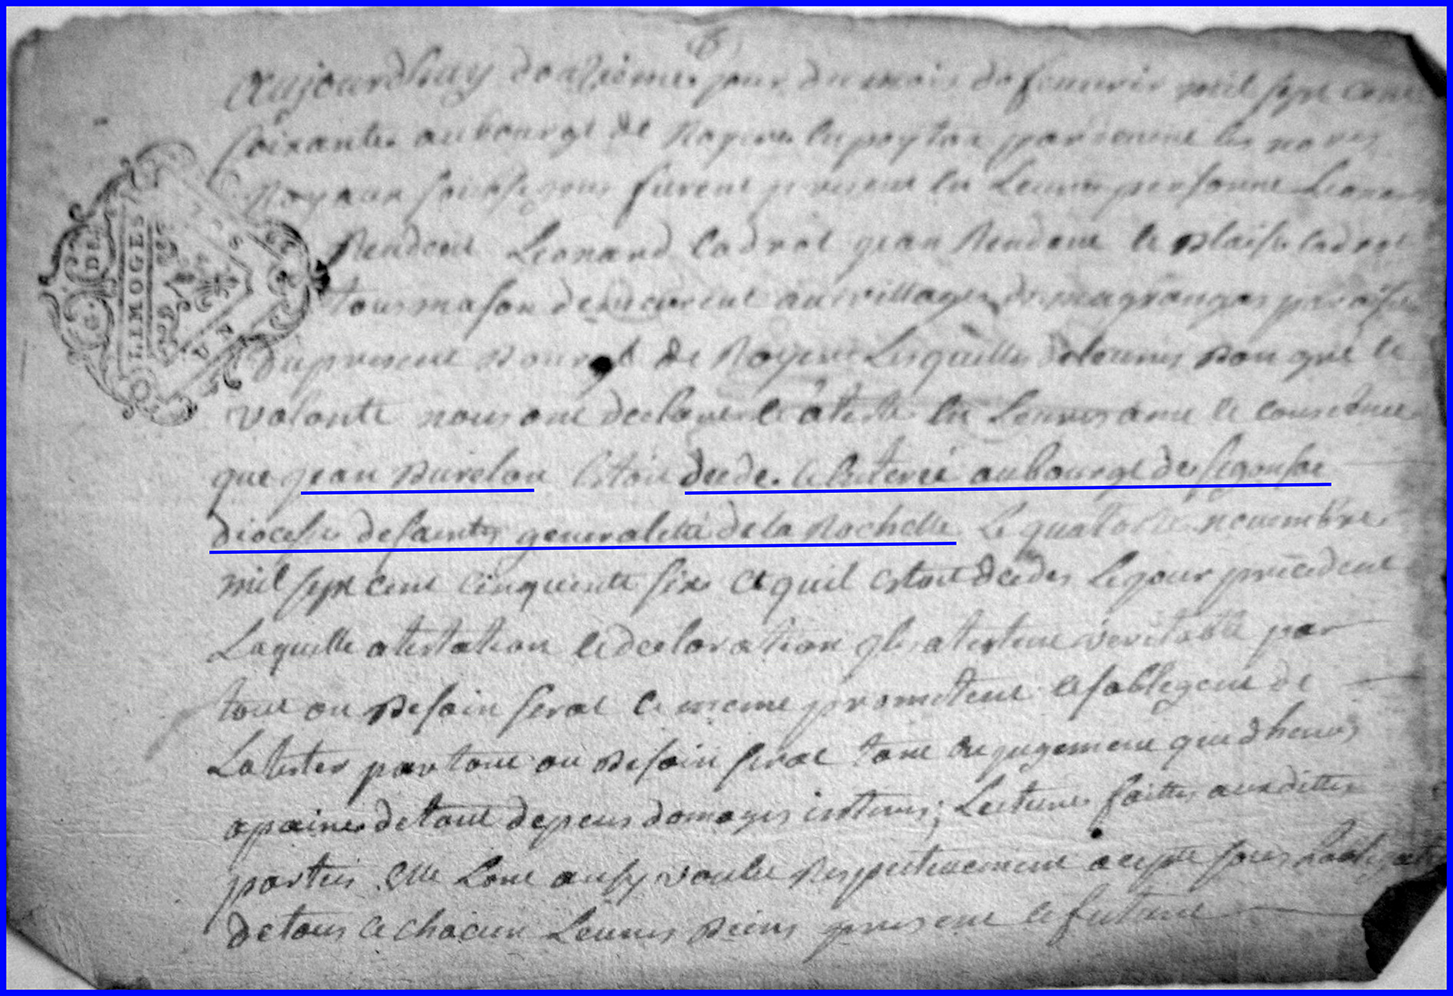 Aujourdhuy douzieme jour du mois de feuvrier mil sept cent
soixante au bourgt de Royere en poytou par devent les no
Royaux soubsignes furent present en leurs personne Leonard
Rendeut Leonard Cadrot jean Rendeut et Blaise Cadrot
tous mason demeurent au village de magranges paroisse
du present Bourgt de Royere Lesquelles de leurs Bon gré et
volonté nous ont declare et atesté en Leurs ame et consience
que jean Burelou estoit decede et enterré au bourgt de segonsac
diocesse de saintes generalette de la Rochelle Le quatorse novembre
mil sept cent cinquente six et quil estoit decedes Le jour precedent
Laquelle atestation et declaration ils atestent veritable par
tout ou Besoin serat et meme promettent et soblegent de
Latester partout ou Besoin serat tant en jugement que dhenus
a paine de tout depens domages interes; Lecture faitte auxdittes
partis elle Lont ausy voulu Respectivement acepte sous
de tous et chacun Leurs Biens present et future
LIMOGES